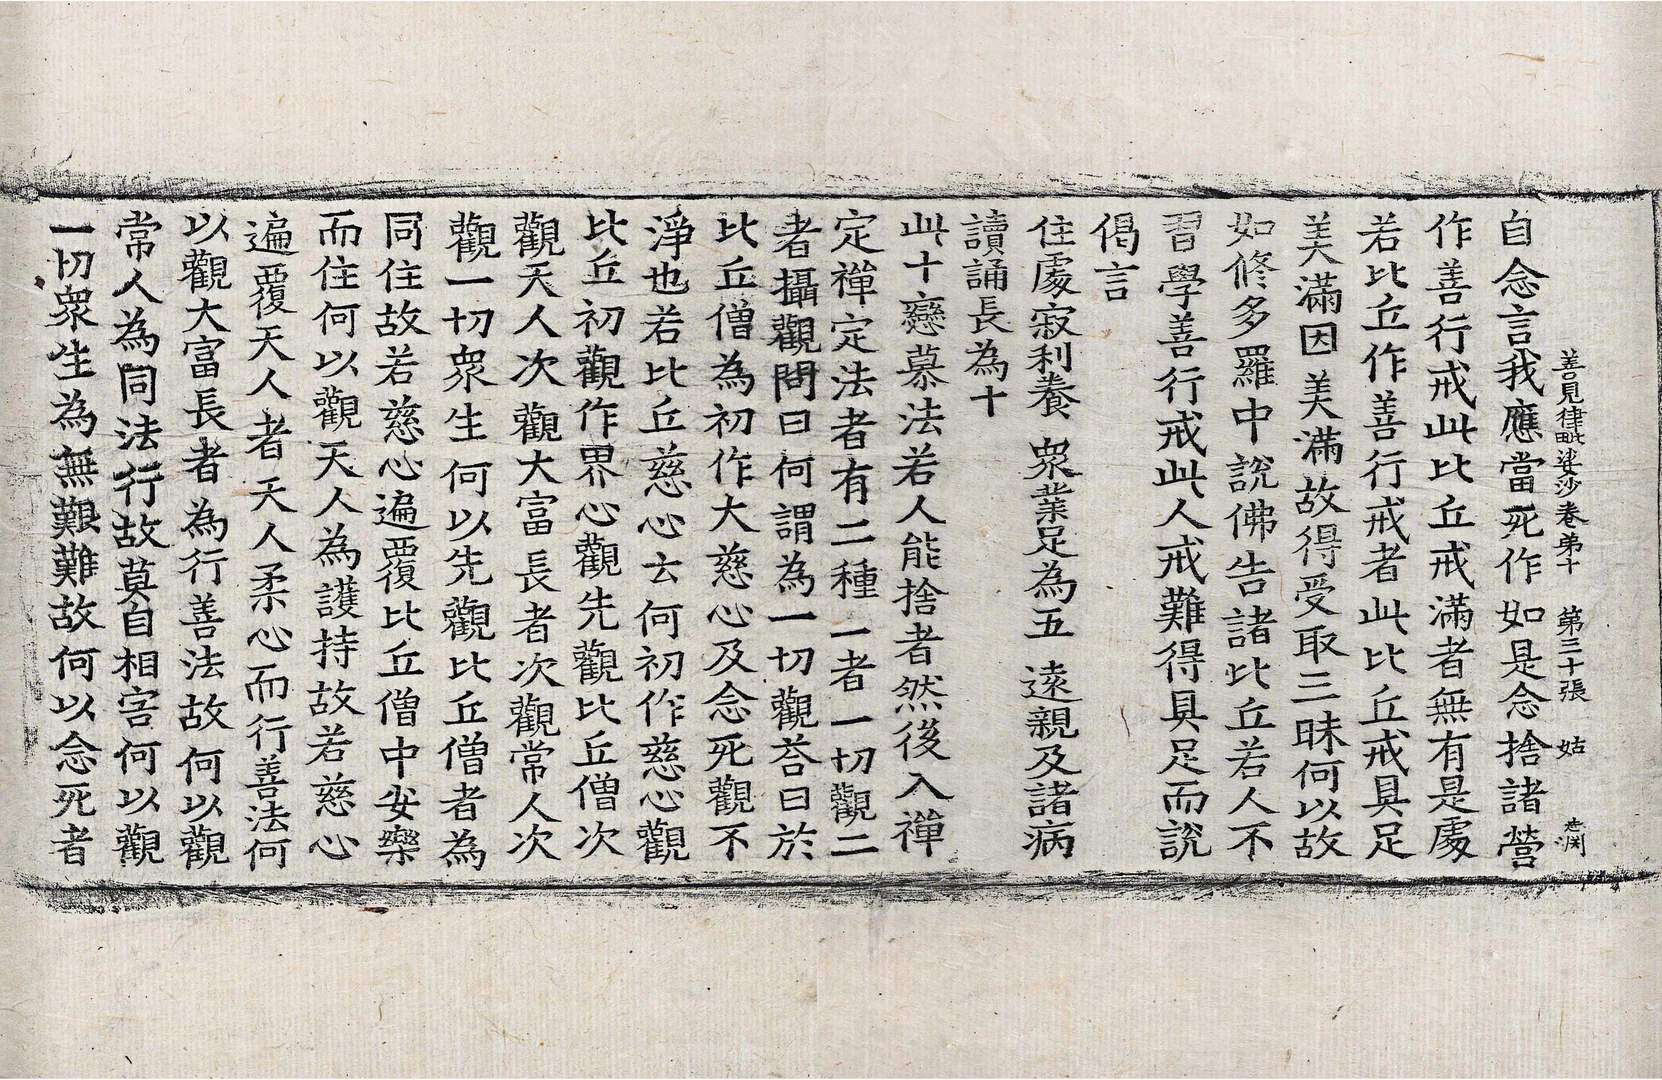 善見律毗婆沙卷第十　第三十張　姑
自念言我應當死作如是念捨諸營
作善行戒此比丘戒滿者無有是處
若比丘作善行戒者此比丘戒具足
美滿因美滿故得受取三昧何以故
如修多羅中說佛告諸比丘若人不
習學善行戒此人戒難得具足而說
偈言
住處寂利養　衆業足為五　遠親及諸病
讀誦長為十
此十戀慕法若人能捨者然後入禪
定禪定法者有二種一者一切觀二
者攝觀問曰何謂為一切觀荅曰於
比丘僧為初作大慈心及念死觀不
淨也若比丘慈心去何初作慈心觀
比丘初觀作界心觀先觀比丘僧次
觀天人次觀大富長者次觀常人次
觀一切衆生何以先觀比丘僧者為
同住故若慈心遍覆比丘僧中安樂
而住何以觀天人為護持故若慈心
遍覆天人者天人柔心而行善法何
以觀大富長者為行善法故何以觀
常人為同法行故莫自相害何以觀
一切衆生為無艱難故何以念死者